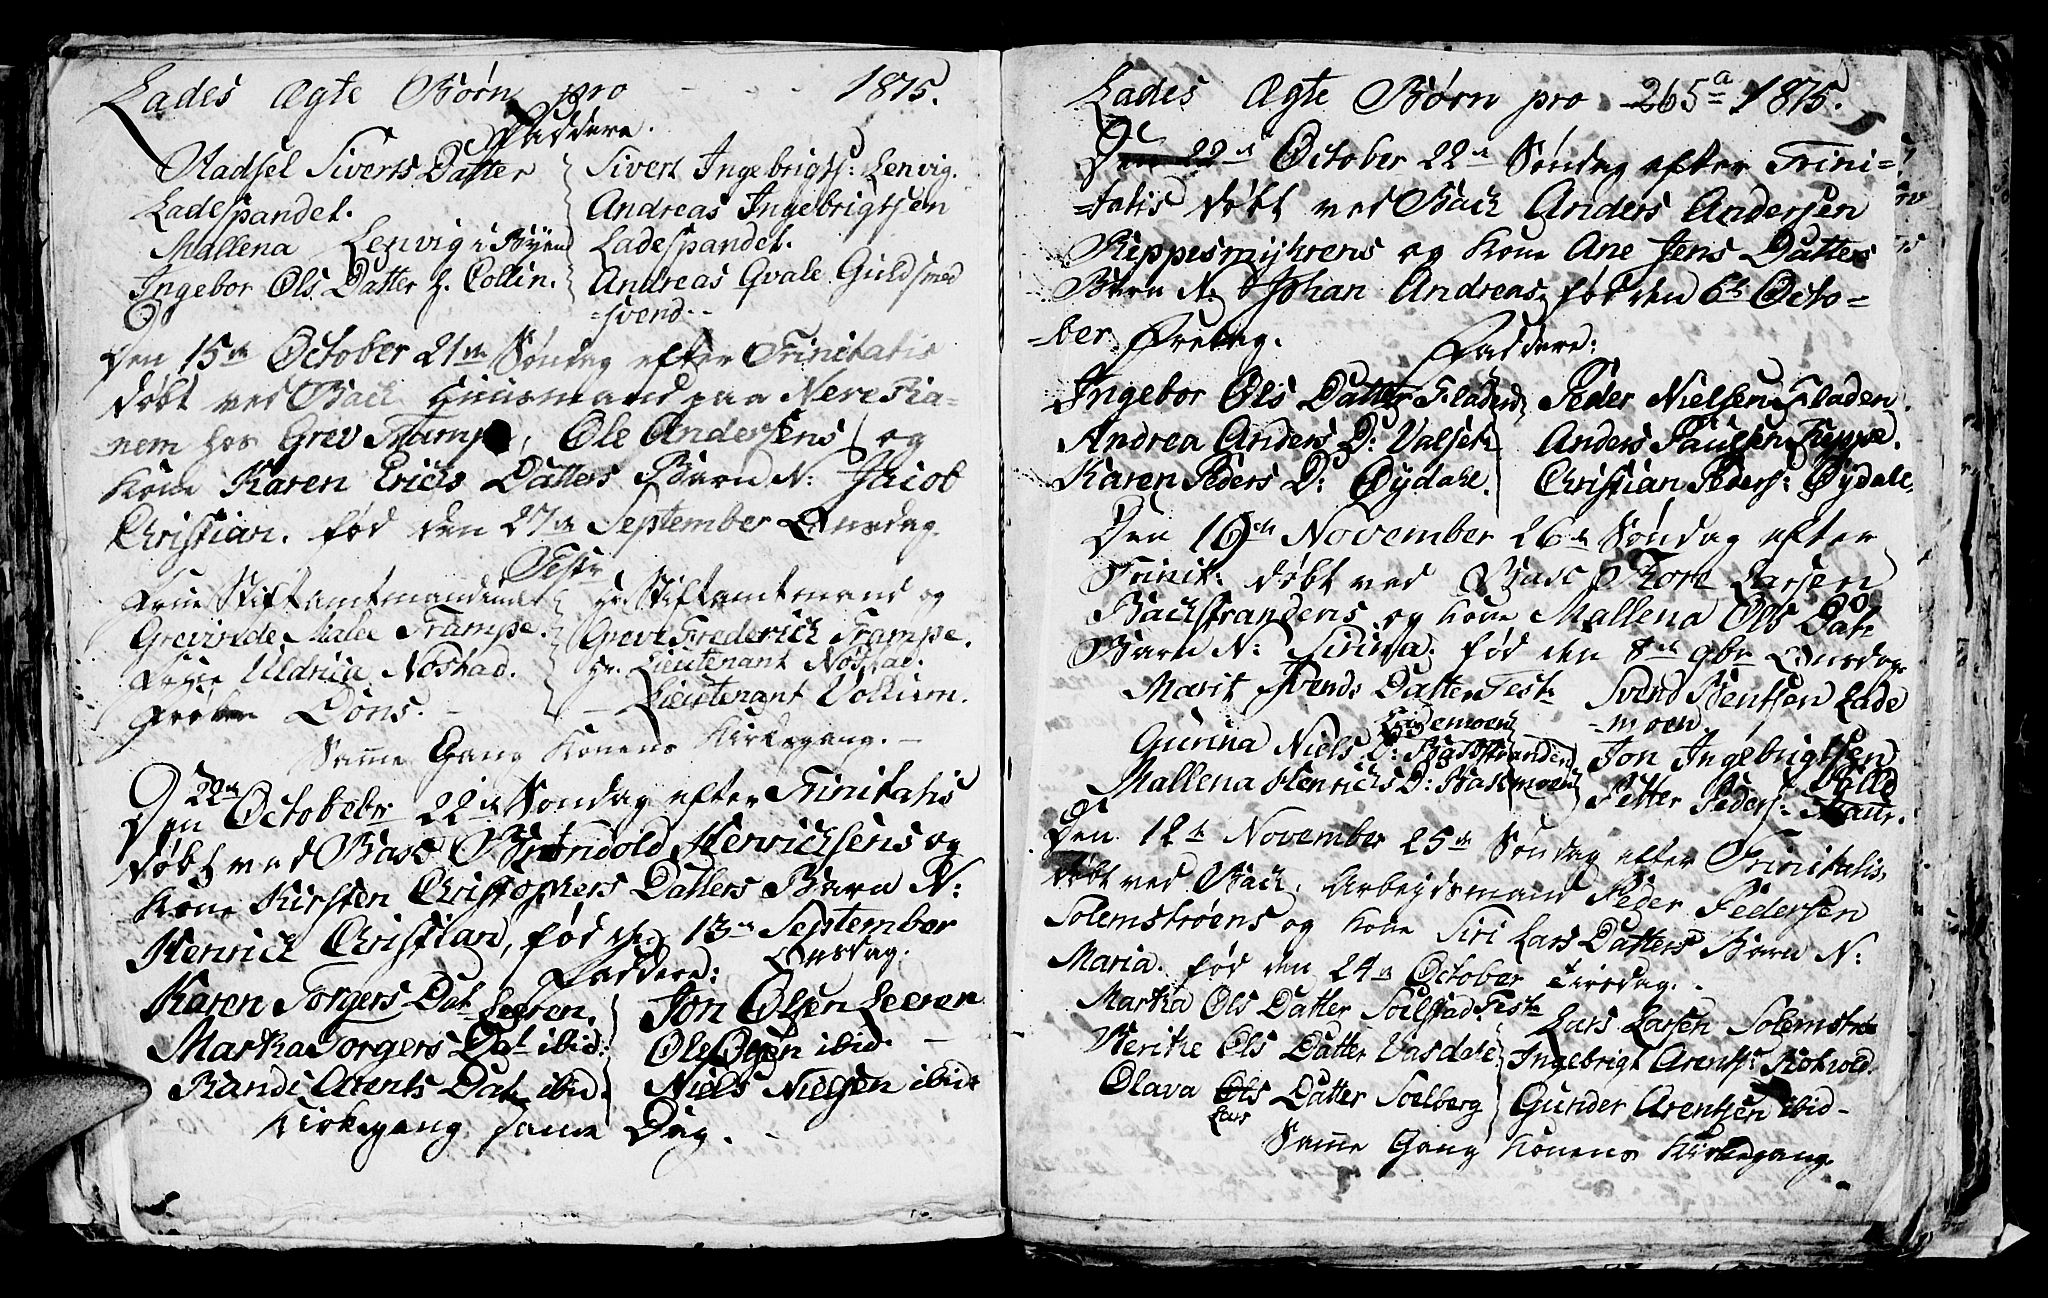 Lades Ægte Børn pro - - - 1815.
Faddere.
Madsel Siverts Datter
Ladespandet.
Mallena Lenvig i Byen
Ingebor Ols Datter h. Collin.
Sivert Ingebrigts: Lenvig.
Andreas Ingebrigtsen
Ladespandet.
Andreas Qvale Guldsmed
=svend.
Den 15de October 21de Søndag efter Trinitatis
døbt ved Bach Huusmand paa Nere Ra=
nem hos Grev Tramp, Ole Andersens og
Kone Karen Erichs Datters Barn N: Jacob
Christian. fød den 27de September Onsdag.
Test:
Frue Stiftamtmandinde
Grevinde Trampe.
Frue Uldrica Nøstad.
Frøken Dons.
Hr. Stiftamtmand og
Greve Frederich Trampe.
Hr. Lieutenant Nøstad.
Lieutenant Volkium.
Same Gang Konens Kirkegang.
Den 22de October 22de Søndag efter Trinitatis
døbt ved Basc Brønold Henrichsens og
Kone Kirsten Christophers Datters Barn N:
Henrich Christian, fød den 13de September
Onsdag.
Faddere:
Karen Torgers Dat Leeren.
Martha Torgers Dat ibid:
Randi Arents Dat ibid.
Jon Olsen Leeren
Ole Olsen ibid.
Niels Nielsen ibid
Kirkegang same Dag.
Lades Ægte Børn pro 265a 1815.
Den 22de October 22de Søndag efter Trini=
=tatis døbt ved Bach Anders Andersen
Reppesmyhrens og Kone Ane Jens Datters
Barn N: Johan Andreas, fød den 6te Octo=
=ber Fredag.
Faddere:
Ingebor Ols Datter Fladen
Andrea Anders D: Valset
Karen Peders D: Øydahl.
Peder Nielsen Fladen.
Anders Paulsen Reppe.
Christian Peders: Øydale.
Den 19de November 26de Søndag efter
Trinit: døbt ved Basc Tore Larsen
Bachstrandens og Kone Mallena Ols Dat
Barn N: Sirina. fød den 8de 9br Onsdag.
Test
Marit Svends Datter
Lademoen
Gurina Niels D: Bachstranden
Mallena Henrichs D: Baksmoen
Svend Bentsen Lade
=moen.
Jon Ingebrigtsen
Petter Peders:
Den 12te November 25de Søndag efter Trinitatis,
døbt ved Bach. Arbeydsmand Peder Pedersen
Solemstrøens og Kone Siri Lars Datters Barn N:
Maria. fød den 24de October Tirsdag.
Test
Martha Ols Datter Soelstad
Merithe Ols Datter Vasdahl
Olava Ols Datter Soelberg
Lars
Lars Larsen Solemstrø
Ingebrigt Arents: Rotvold.
Gunder Arentsen ibid
Same Gang Konens Kirkegang.